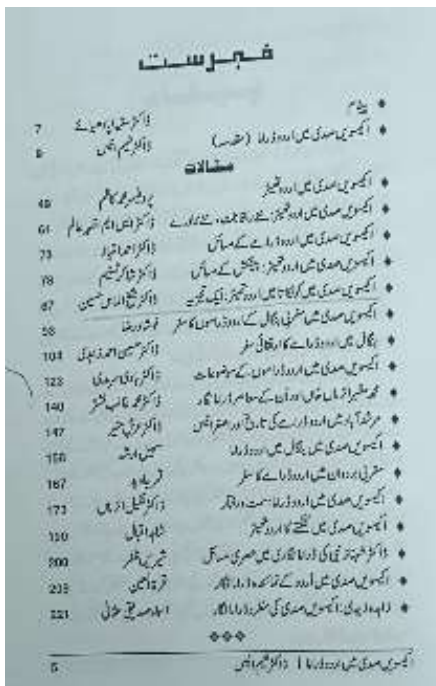 فہرست
♦ پیغام ڈاکٹر ستیہ اپادھیائے 7
♦ اکیسویں صدی میں اردو ڈراما (مقدمہ) ڈاکٹر نعیم انیس 9
مقالات
♦ اکیسویں صدی میں اردو تھیٹر پروفیسر محمد کاظم 49
♦ اکیسویں صدی میں اردو تھیٹر: نئے رجحانات، نئے زاویے ڈاکٹر ایس ایم اظہر عالم 61
♦ اکیسویں صدی میں اردو ڈرامے کے مسائل ڈاکٹر احمد امتیاز 73
♦ اکیسویں صدی میں اردو تھیٹر: پیشکش کے مسائل ڈاکٹر شاکر تسنیم 78
♦ اکیسویں صدی میں کولکاتا میں اردو تھیٹر: ایک تجزیہ ڈاکٹر حسین 87
♦ اکیسویں صدی میں مغربی بنگال کے اردو ڈراموں کا سفر رضا
♦ بنگال میں اردو ڈرامے کا ارتقائی سفر ڈاکٹر حسین احمد زاہدی 104
♦ اکیسویں صدی میں اردو ڈراموں کے موضوعات ڈاکٹر 123
♦ محمد خاں اور اُن کے معاصر ڈراما نگار ڈاکٹر محمد غالب نشتر 140
♦ مرشدآباد میں اردو ڈرامے کی تاریخ اور ڈاکٹر 147
♦ اکیسویں صدی میں بنگال میں اردو ڈراما ارشد
♦ مغربی بردوان میں اردو ڈرامے کا سفر 167
♦ اکیسویں صدی میں اردو ڈراما سمت و رفتار ڈاکٹر 173
♦ اکیسویں صدی میں کلکتے کا اردو تھیٹر شاہد اقبال 190
♦ ڈاکٹر شہناز نبی کی ڈراما نگاری میں عصری مسائل شیریں ظفر 200
♦ اکیسویں صدی میں اُردو کے نمائندہ ڈراما نگار
♦ زاہدہ زیدی: اکیسویں صدی کی منفرد ڈراما نگار صدیقی 221
اکیسویں صدی میں اردو ڈراما | ڈاکٹر نعیم انیس 5